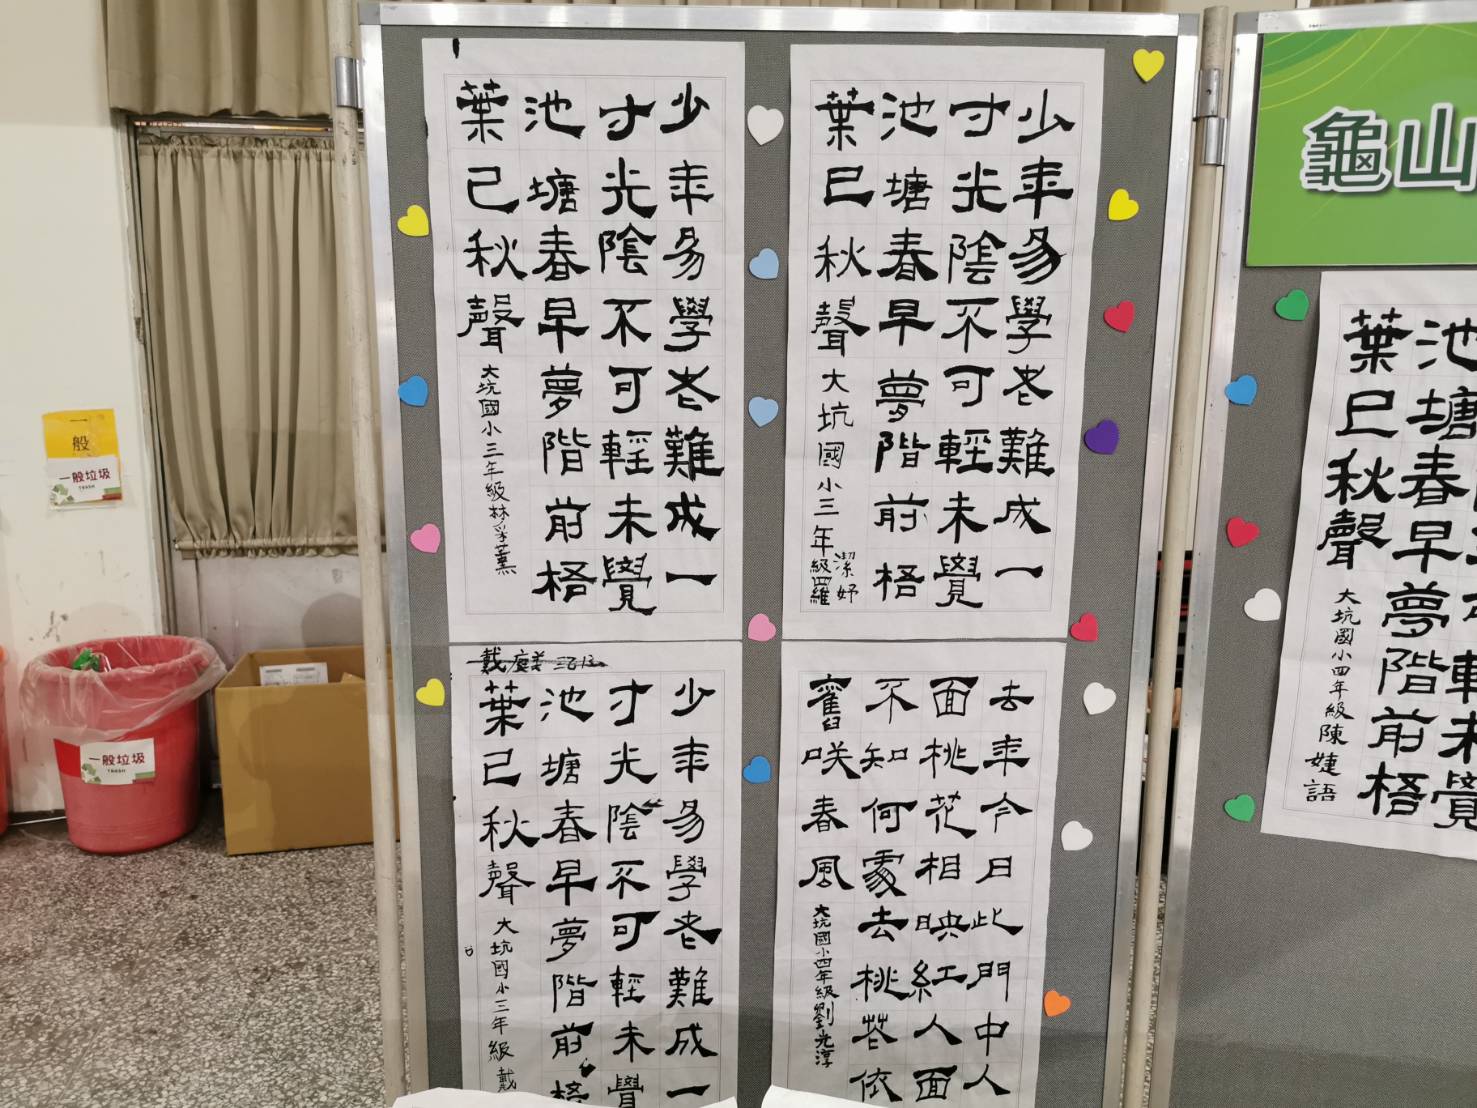 少年易學老難成一
寸光陰不可輕未覺
池塘春早夢階前梧
葉已秋聲
大坑國小三年級羅潔妤
少年易學老難成一
寸光陰不可輕未覺
池塘春早夢階前梧
葉已秋聲
大坑國小三年級林
去年今日此門中人
面桃花相映紅人面
不知何處去桃花依
舊咲春風
大坑國小四年級劉光淳
少年易學老難成一
寸光陰不可輕未覺
池塘春早夢階前梧
葉已秋聲
大坑國小三年級戴
龜山
輕未覺
池塘春早夢階前梧
葉已秋聲
大坑國小四年級陳婕語
一般
一般垃圾
TRASH
一般垃圾
TRASH